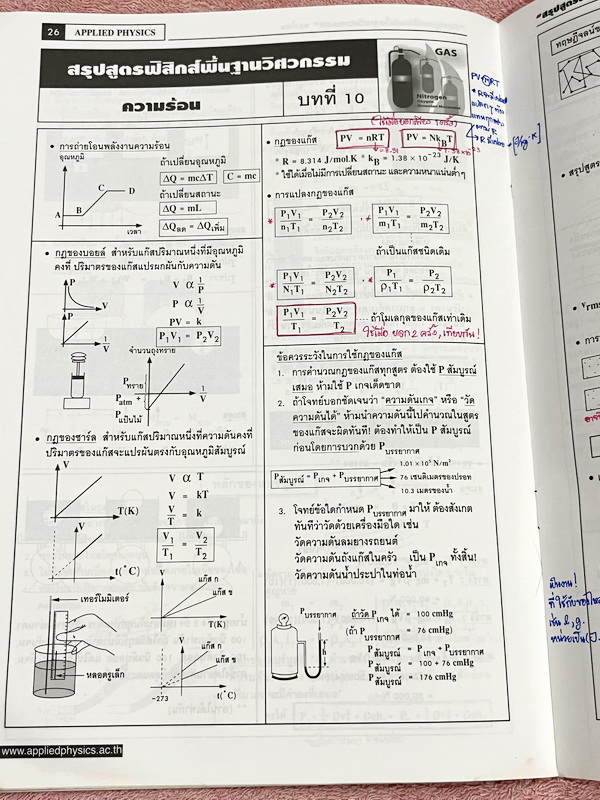 26 APPLIED PHYSICS
สรุปสูตรฟิสิกส์พื้นฐานวิศวกรรม
ความร้อน
บทที่ 10
GAS
Nitrogen
Oxygen
• การถ่ายโอนพลังงานความร้อน
อุณหภูมิ
A B C D
เวลา
ถ้าเปลี่ยนอุณหภูมิ
ΔQ = mcΔT C = mc
ถ้าเปลี่ยนสถานะ
ΔQ = mL
ΔQลด = ΔQเพิ่ม
• กฎของบอยล์ สำหรับแก๊สปริมาณหนึ่งที่มีอุณหภูมิ
คงที่ ปริมาตรของแก๊สแปรผกผันกับความดัน
P
V
V α 1/P
P α 1/V
P
1/V
PV = k
P₁V₁ = P₂V₂
จำนวนถุงทราย
Pทราย
Patm +
Pแป้นไม้
1/V
• กฎของชาร์ล สำหรับแก๊สปริมาณหนึ่งที่ความดันคงที่
ปริมาตรของแก๊สจะแปรผันตรงกับอุณหภูมิสัมบูรณ์
V
T(K)
V α T
V = kT
V/T = k
V₁/T₁ = V₂/T₂
V
t(°C)
เทอร์โมมิเตอร์
หลอดรูเล็ก
V
แก๊ส ก
แก๊ส ข
T(K)
V
แก๊ส ก
แก๊ส ข
-273
t(°C)
• กฎของแก๊ส
PV = nRT
PV = NkBT
* R = 8.314 J/mol.K * kB = 1.38 × 10⁻²³ J/K
* ใช้ได้เมื่อไม่มีการเปลี่ยนสถานะ และความหนาแน่นต่ำๆ
• การแปลงกฎของแก๊ส
P₁V₁/n₁T₁ = P₂V₂/n₂T₂
P₁V₁/m₁T₁ = P₂V₂/m₂T₂
ถ้าเป็นแก๊สชนิดเดิม
P₁V₁/N₁T₁ = P₂V₂/N₂T₂
P₁/ρ₁T₁ = P₂/ρ₂T₂
P₁V₁/T₁ = P₂V₂/T₂ ถ้าโมเลกุลของแก๊สเท่าเดิม
ข้อควรระวังในการใช้กฎของแก๊ส
1. การคำนวณกฎของแก๊สทุกสูตร ต้องใช้ P สัมบูรณ์
เสมอ ห้ามใช้ P เกจเด็ดขาด
2. ถ้าโจทย์บอกชัดเจนว่า "ความดันเกจ" หรือ "วัด
ความดันได้" ห้ามนำความดันนี้ไปคำนวณในสูตร
ของแก๊สจะผิดทันที! ต้องทำให้เป็น P สัมบูรณ์
ก่อนโดยการบวกด้วย Pบรรยากาศ
Pสัมบูรณ์ = Pเกจ + Pบรรยากาศ
1.01 × 10⁵ N/m²
76 เซนติเมตรของปรอท
10.3 เมตรของน้ำ
3. โจทย์ข้อใดกำหนด Pบรรยากาศ มาให้ ต้องสังเกต
ทันทีว่าวัดด้วยเครื่องมือใด เช่น
วัดความดันลมยางรถยนต์
วัดความดันถังแก๊สในครัว เป็น Pเกจ ทั้งสิ้น!
วัดความดันน้ำประปาในท่อน้ำ
Pบรรยากาศ
h
ถ้าวัด Pเกจ ได้ = 100 cmHg
(ถ้า Pบรรยากาศ = 76 cmHg)
Pสัมบูรณ์ = Pเกจ + Pบรรยากาศ
Pสัมบูรณ์ = 100 + 76 cmHg
Pสัมบูรณ์ = 176 cmHg
www.appliedphysics.ac.th